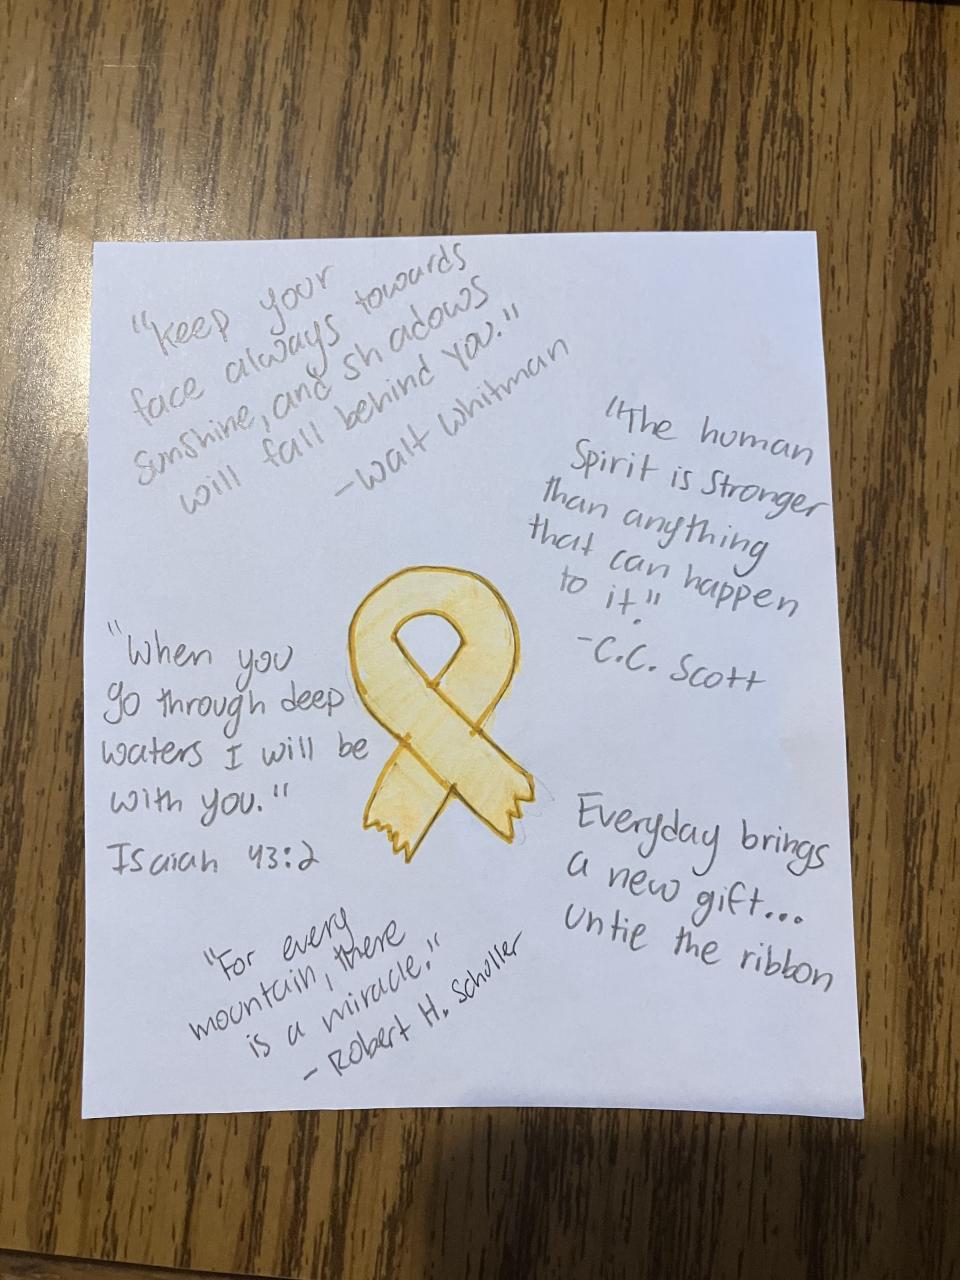 "Keep your
face always towards
sunshine, and shadows
will fall behind you."
-Walt Whitman
"The human
Spirit is stronger
than anything
that can happen
to it."
-C.C. Scott
"When you
go through deep
waters I will be
with you."
Isaiah 43:2
Everyday brings
a new gift...
untie the ribbon
"For every
mountain, there
is a miracle."
- Robert H. Schuller